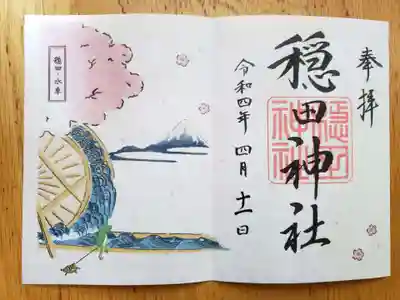 奉拝
穏田神社
穏田
神社
令和四年 四月 十一日
穏田・水車